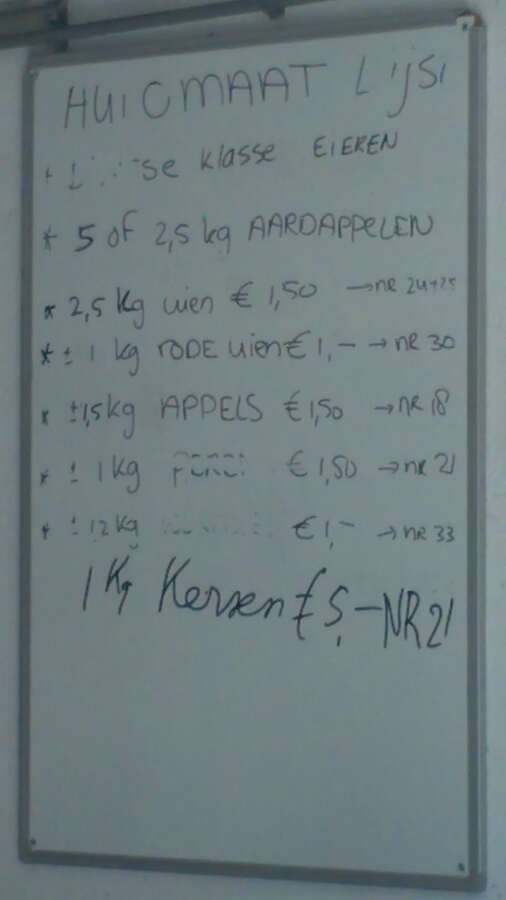 HUICMAAT Lijst
klasse EIEREN
* 5 of 2,5 kg AARDAPPELEN
* 2,5 kg uien € 1,50 → nr 24+25
* ± 1 kg RODE uien € 1,- → nR 30
* ± 1,5 kg APPELS € 1,50 → nR 18
* ± 1 kg € 1,50 → nR 21
* ± 1,2 kg € 1,- → nR 33
1 Kg Kersen € 5,- NR 21